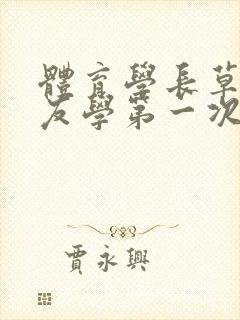 體育學長草
友學第一次
賈永興